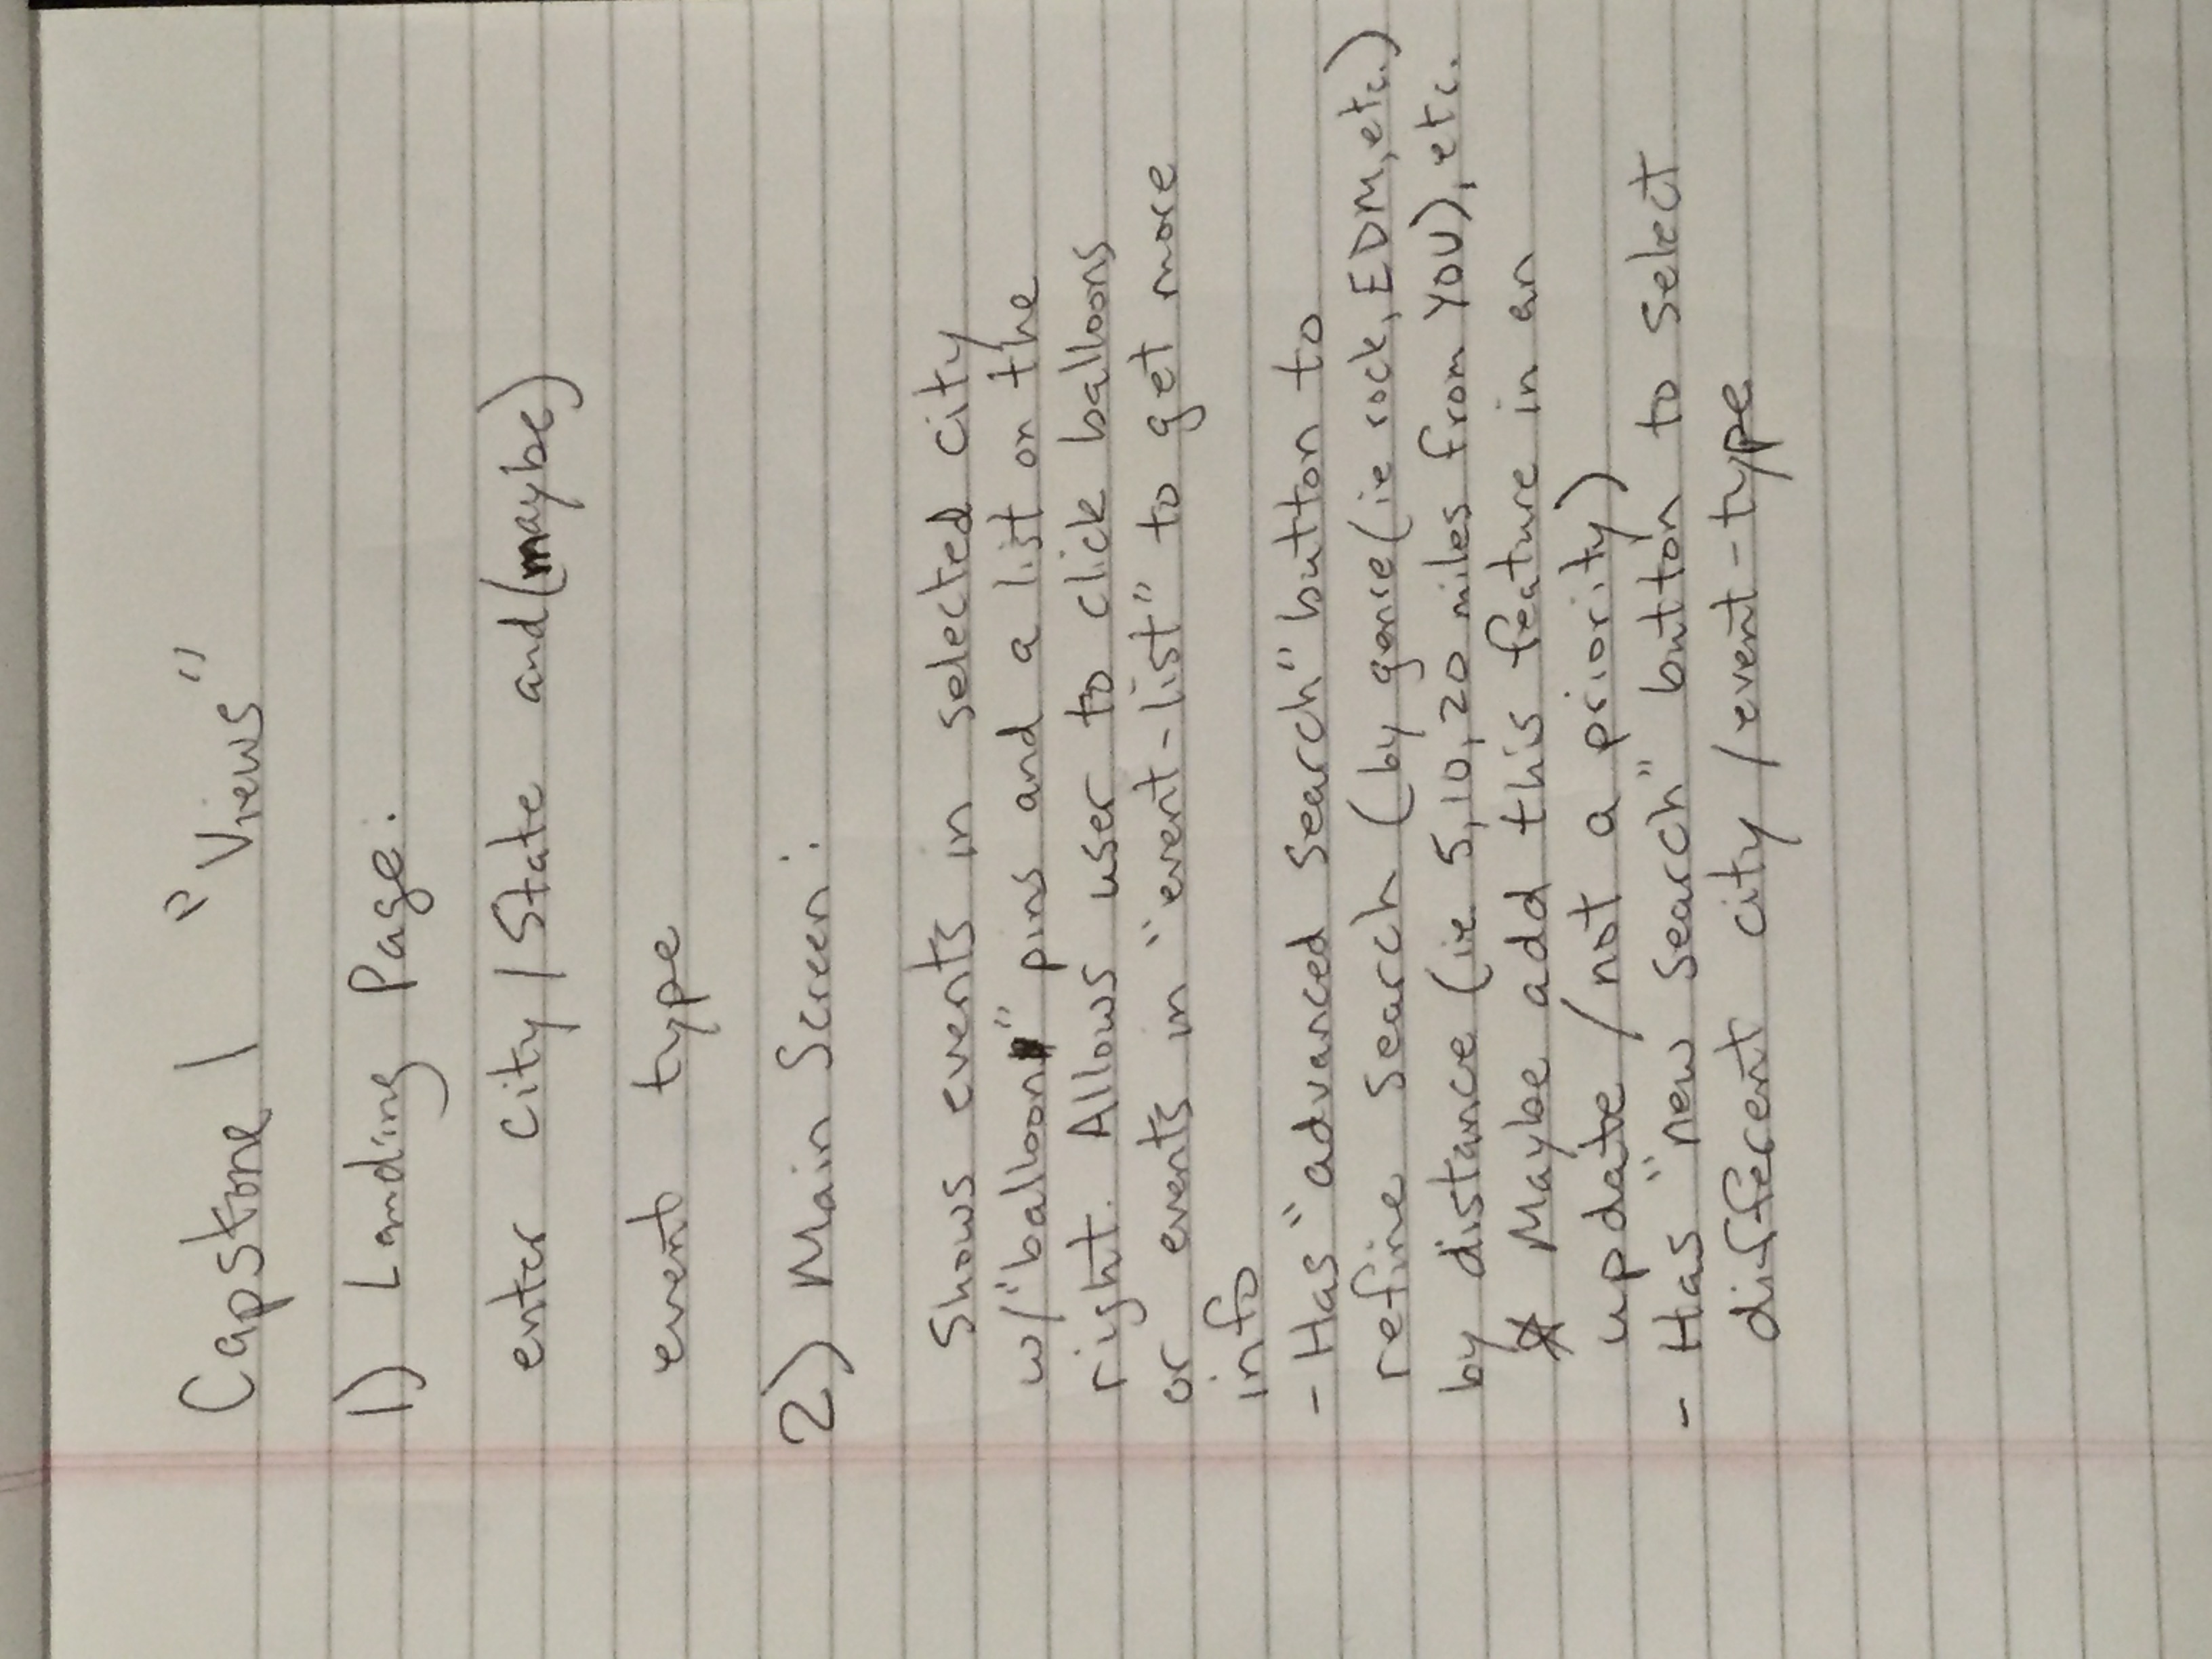 Capstone 1 "Views"
1) Landing Page:
enter city / State and (maybe)
event type
2) Main Screen:
Shows events in selected city
w/ "balloon" pins and a list on the
right. Allows user to click balloons
or events in "event-list" to get more
info
- Has "advanced search" button to
refine search (by genre (ie rock, EDM, etc.)
by distance (ie. 5, 10, 20 miles from YOU), etc.
☆ Maybe add this feature in an
update / not a priority)
- Has "new search" button to select
different city / event-type